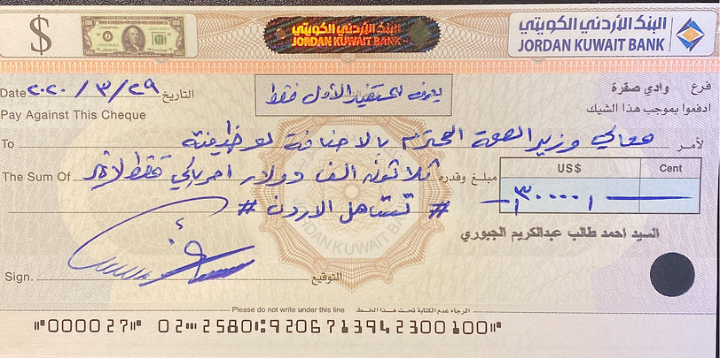 البنك الأردني الكويتي
JORDAN KUWAIT BANK
البنك الأردني الكويتي
JORDAN KUWAIT BANK
$
Date ٢٠٢٠ / ٣ / ٢٩ التاريخ
يصرف للمستفيد الأول فقط
فرع وادي صقرة
Pay Against This Cheque
ادفعوا بموجب هذا الشيك
To معالي وزير الصحة المحترم بالاضافة لوظيفته لأمر
The Sum Of ثلاثون الف دولار امريكي فقط لاغير مبلغ وقدره
US$ Cent
٣٠٠٠٠
# تستاهل الاردن #
السيد احمد طالب عبدالكريم الجبوري
JORDAN KUWAIT BANK
Sign. التوقيع
Please do not write under this line الرجاء عدم الكتابة تحت هذا الخط
⑈000027⑈ 02⑉2580⑆92067⑆3942300100⑈